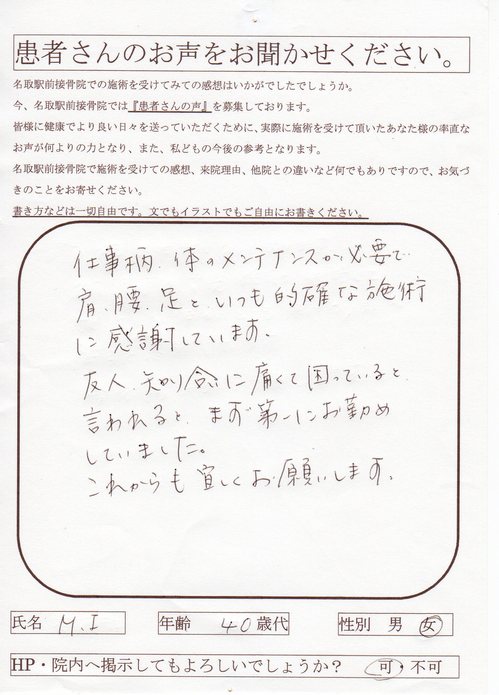 患者さんのお声をお聞かせください。
名取駅前接骨院での施術を受けてみての感想はいかがでしたでしょうか。
今、名取駅前接骨院では『患者さんの声』を募集しております。
皆様に健康でより良い日々を送っていただくために、実際に施術を受けて頂いたあなた様の率直な
お声が何よりの力となり、また、私どもの今後の参考となります。
名取駅前接骨院で施術を受けての感想、来院理由、他院との違いなど何でもありですので、お気づ
きのことをお寄せください。
書き方などは一切自由です。文でもイラストでもご自由にお書きください。
仕事柄、体のメンテナンスが必要で
肩、腰、足と、いつも的確な施術
に感謝しています。
友人、知り合いに痛くて困っていると
言われると、まず第一にお勤め
していました。
これからも宜しくお願いします。
氏名 M.I 年齢 40歳代 性別 男 女
HP・院内へ掲示してもよろしいでしょうか? 可・不可